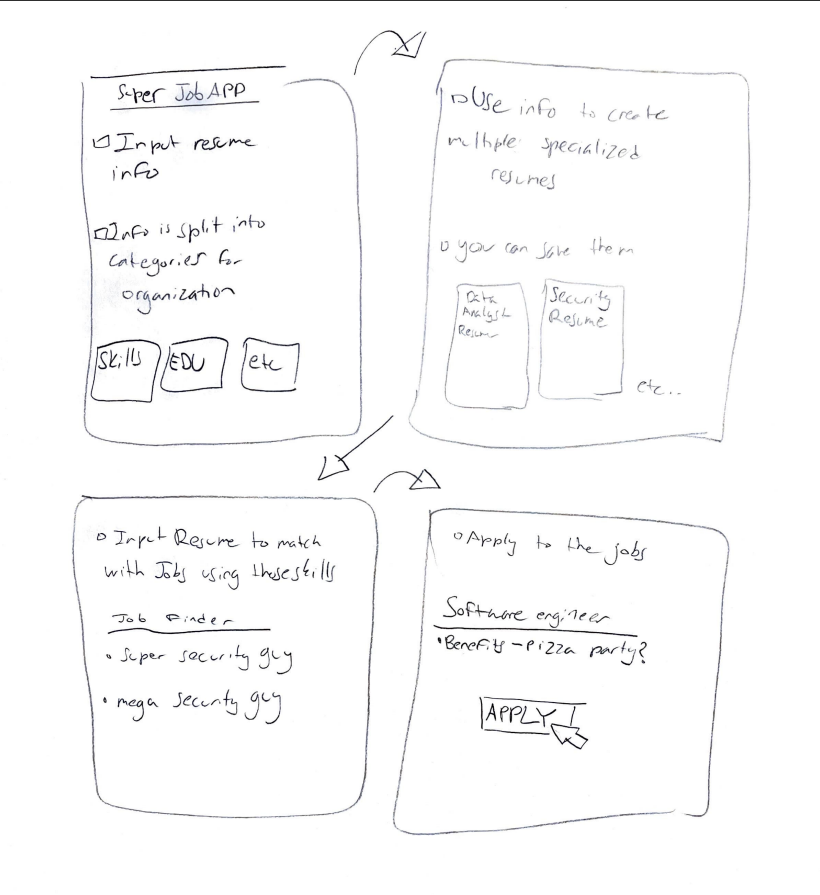 Super Job APP
Input resume
info
Info is split into
categories for
organization
Skills
EDU
etc
Use info to create
multiple specialized
resumes
you can save them
Data
Analyst
Resume
Security
Resume
etc..
Input Resume to match
with Jobs using those skills
Job Finder
• Super security guy
• mega security guy
Apply to the jobs
Software engineer
• Benefits - Pizza party?
APPLY